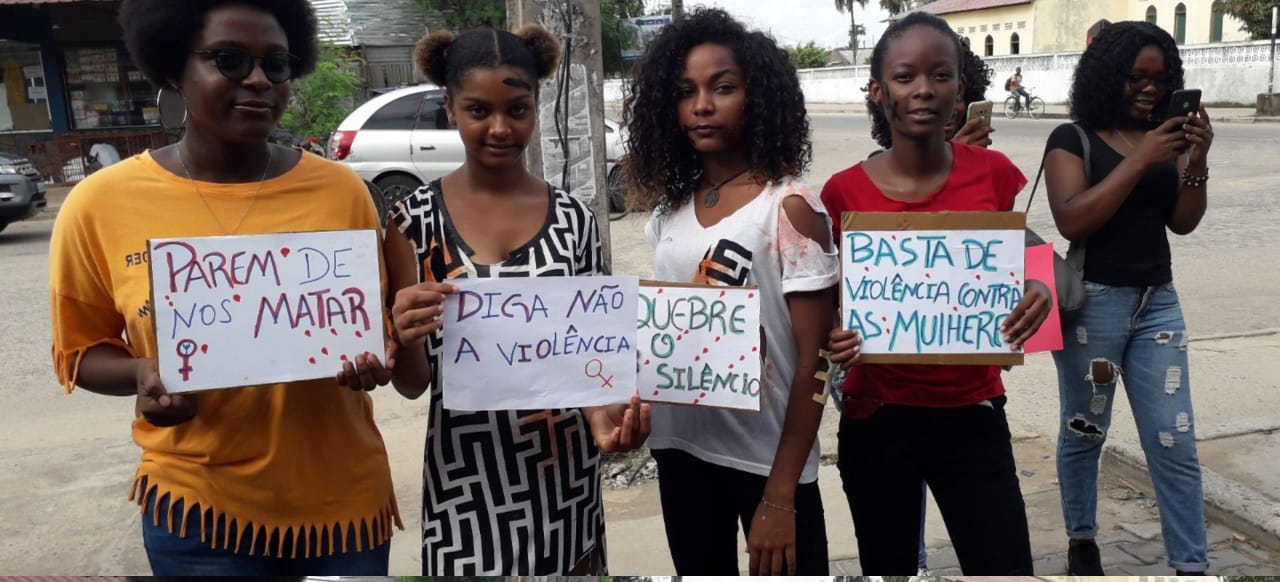 PAREM DE
NOS MATAR
DIGA NÃO
A VIOLÊNCIA
QUEBRE
O
SILÊNCIO
BASTA DE
VIOLÊNCIA CONTRA
AS MULHERES